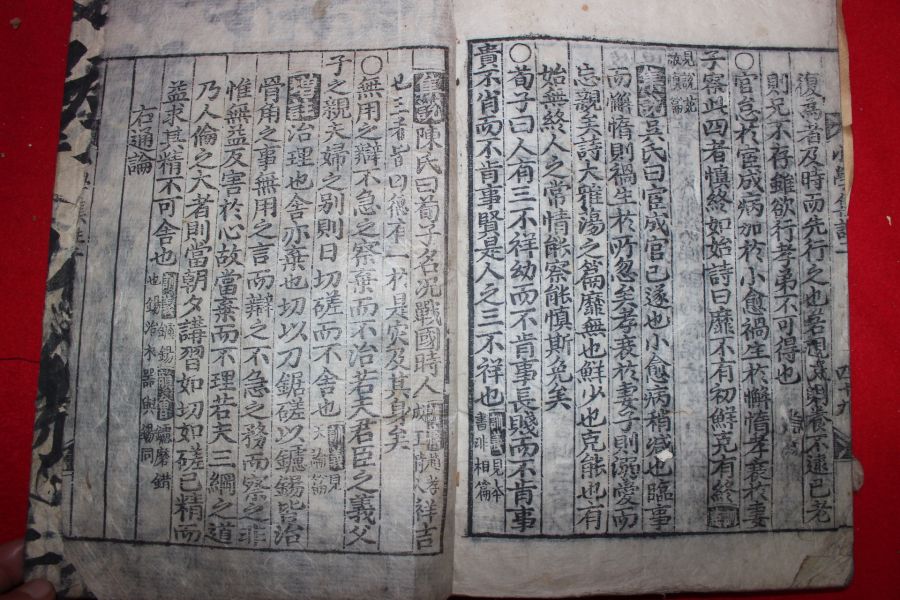 復爲者及時而先行之也若親旣歿養不逮已老
則兄不存雖欲行孝弟不可得也
○官怠於宦成病加於小愈禍生於懈惰孝衰於妻
子察此四者愼終如始詩曰靡不有初鮮克有終
見說苑敬愼篇
集說吳氏曰官成官已遂也小愈病稍減也臨事
而懈惰則禍生於所忽矣孝衰於妻子則溺愛而
忘親矣詩大雅蕩之篇靡無也鮮少也克能也有
始無終人之常情能察能愼斯免矣
○荀子曰人有三不祥幼而不肯事長賤而不肯事
貴不肖而不肯事賢是人之三不祥也見本書非相篇
集說陳氏曰荀子名況戰國時人祥吉
也三者皆凶德有一於是災及其身矣
○無用之辯不急之察棄而不治若夫君臣之義父
子之親夫婦之別則日切磋而不舍也
集說治理也舍亦棄也切以刀鋸磋以鑢鐋皆治
骨角之事無用之言而辯之不急之務而察之非
惟無益反害於心故當棄而不理若夫三綱之道
乃人倫之大者則當朝夕講習如切如磋已精而
益求其精不可舍也
右通論